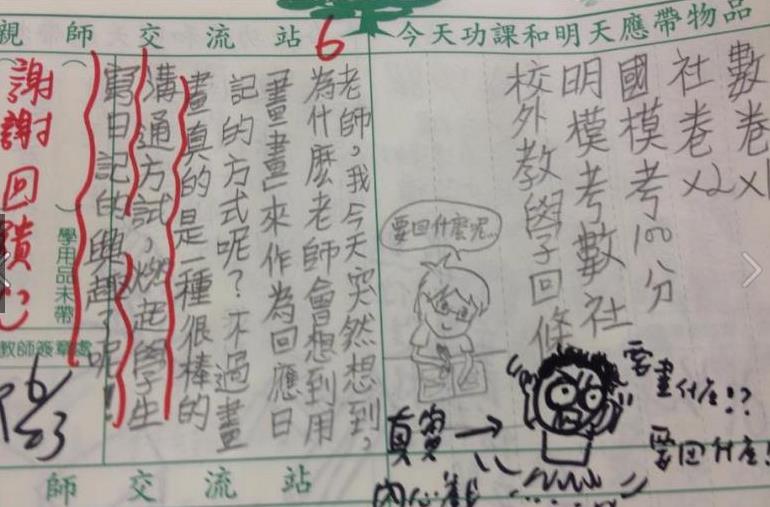 今天功課和明天應帶物品
數卷x1
社卷x2
國模考100分
明模考數社
校外教學回條
要回什麼呢...
要畫什麼!?
要回什麼!
真實
內心戲
親師交流站
6
老師，我今天突然想到，
為什麼老師會想到用
「畫畫」來作為回應日
記的方式呢？不過畫
畫真的是一種很棒的
溝通方試，燃起學生
寫日記的興趣了呢！
謝謝回饋
學用品未帶
教師簽章處
師交流站